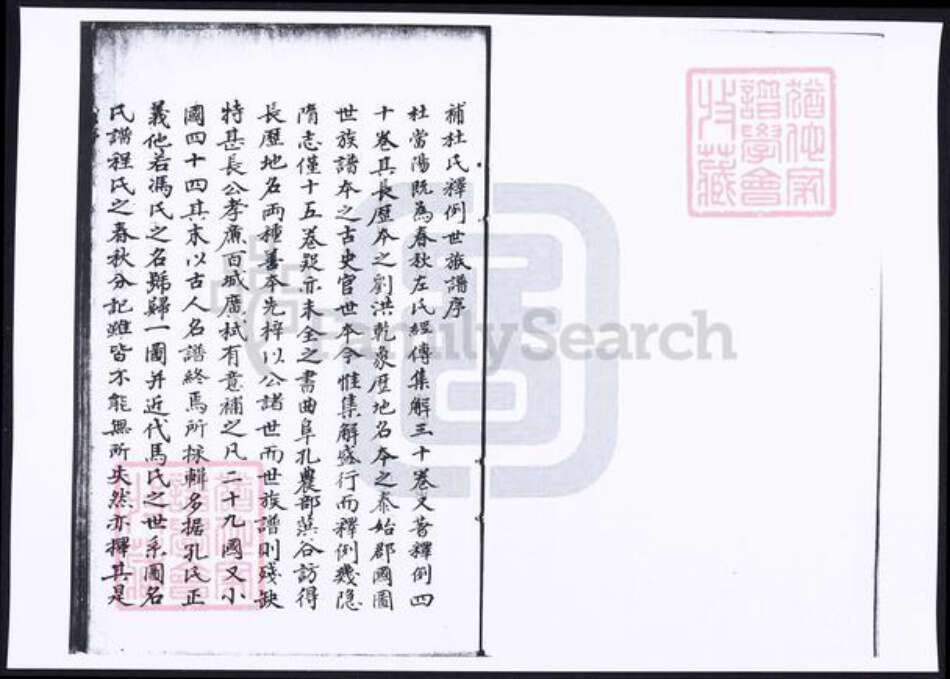 補杜氏釋例世族譜序
杜當陽既為春秋左氏經傳集解三十卷又著釋例四
十卷其長歷本之劉洪乾象歷地名本之泰始郡國圖
世族譜本之古史官世本今惟集解盛行而釋例幾隐
隋志僅十五卷疑亦未全之書曲阜孔農部葓谷訪得
長歷地名兩種善本先梓以公諸世而世族譜則殘缺
特甚長公孝廉百城廣栻有意補之凡二十九國又小
國四十四其末以古人名譜終焉所採輯多据孔氏正
義他若馮氏之名號歸一圖并近代馬氏之世系圖名
氏譜程氏之春秋分記雖皆不能無所失然亦擇其是
猶他家
譜學會
收藏
FamilySearch